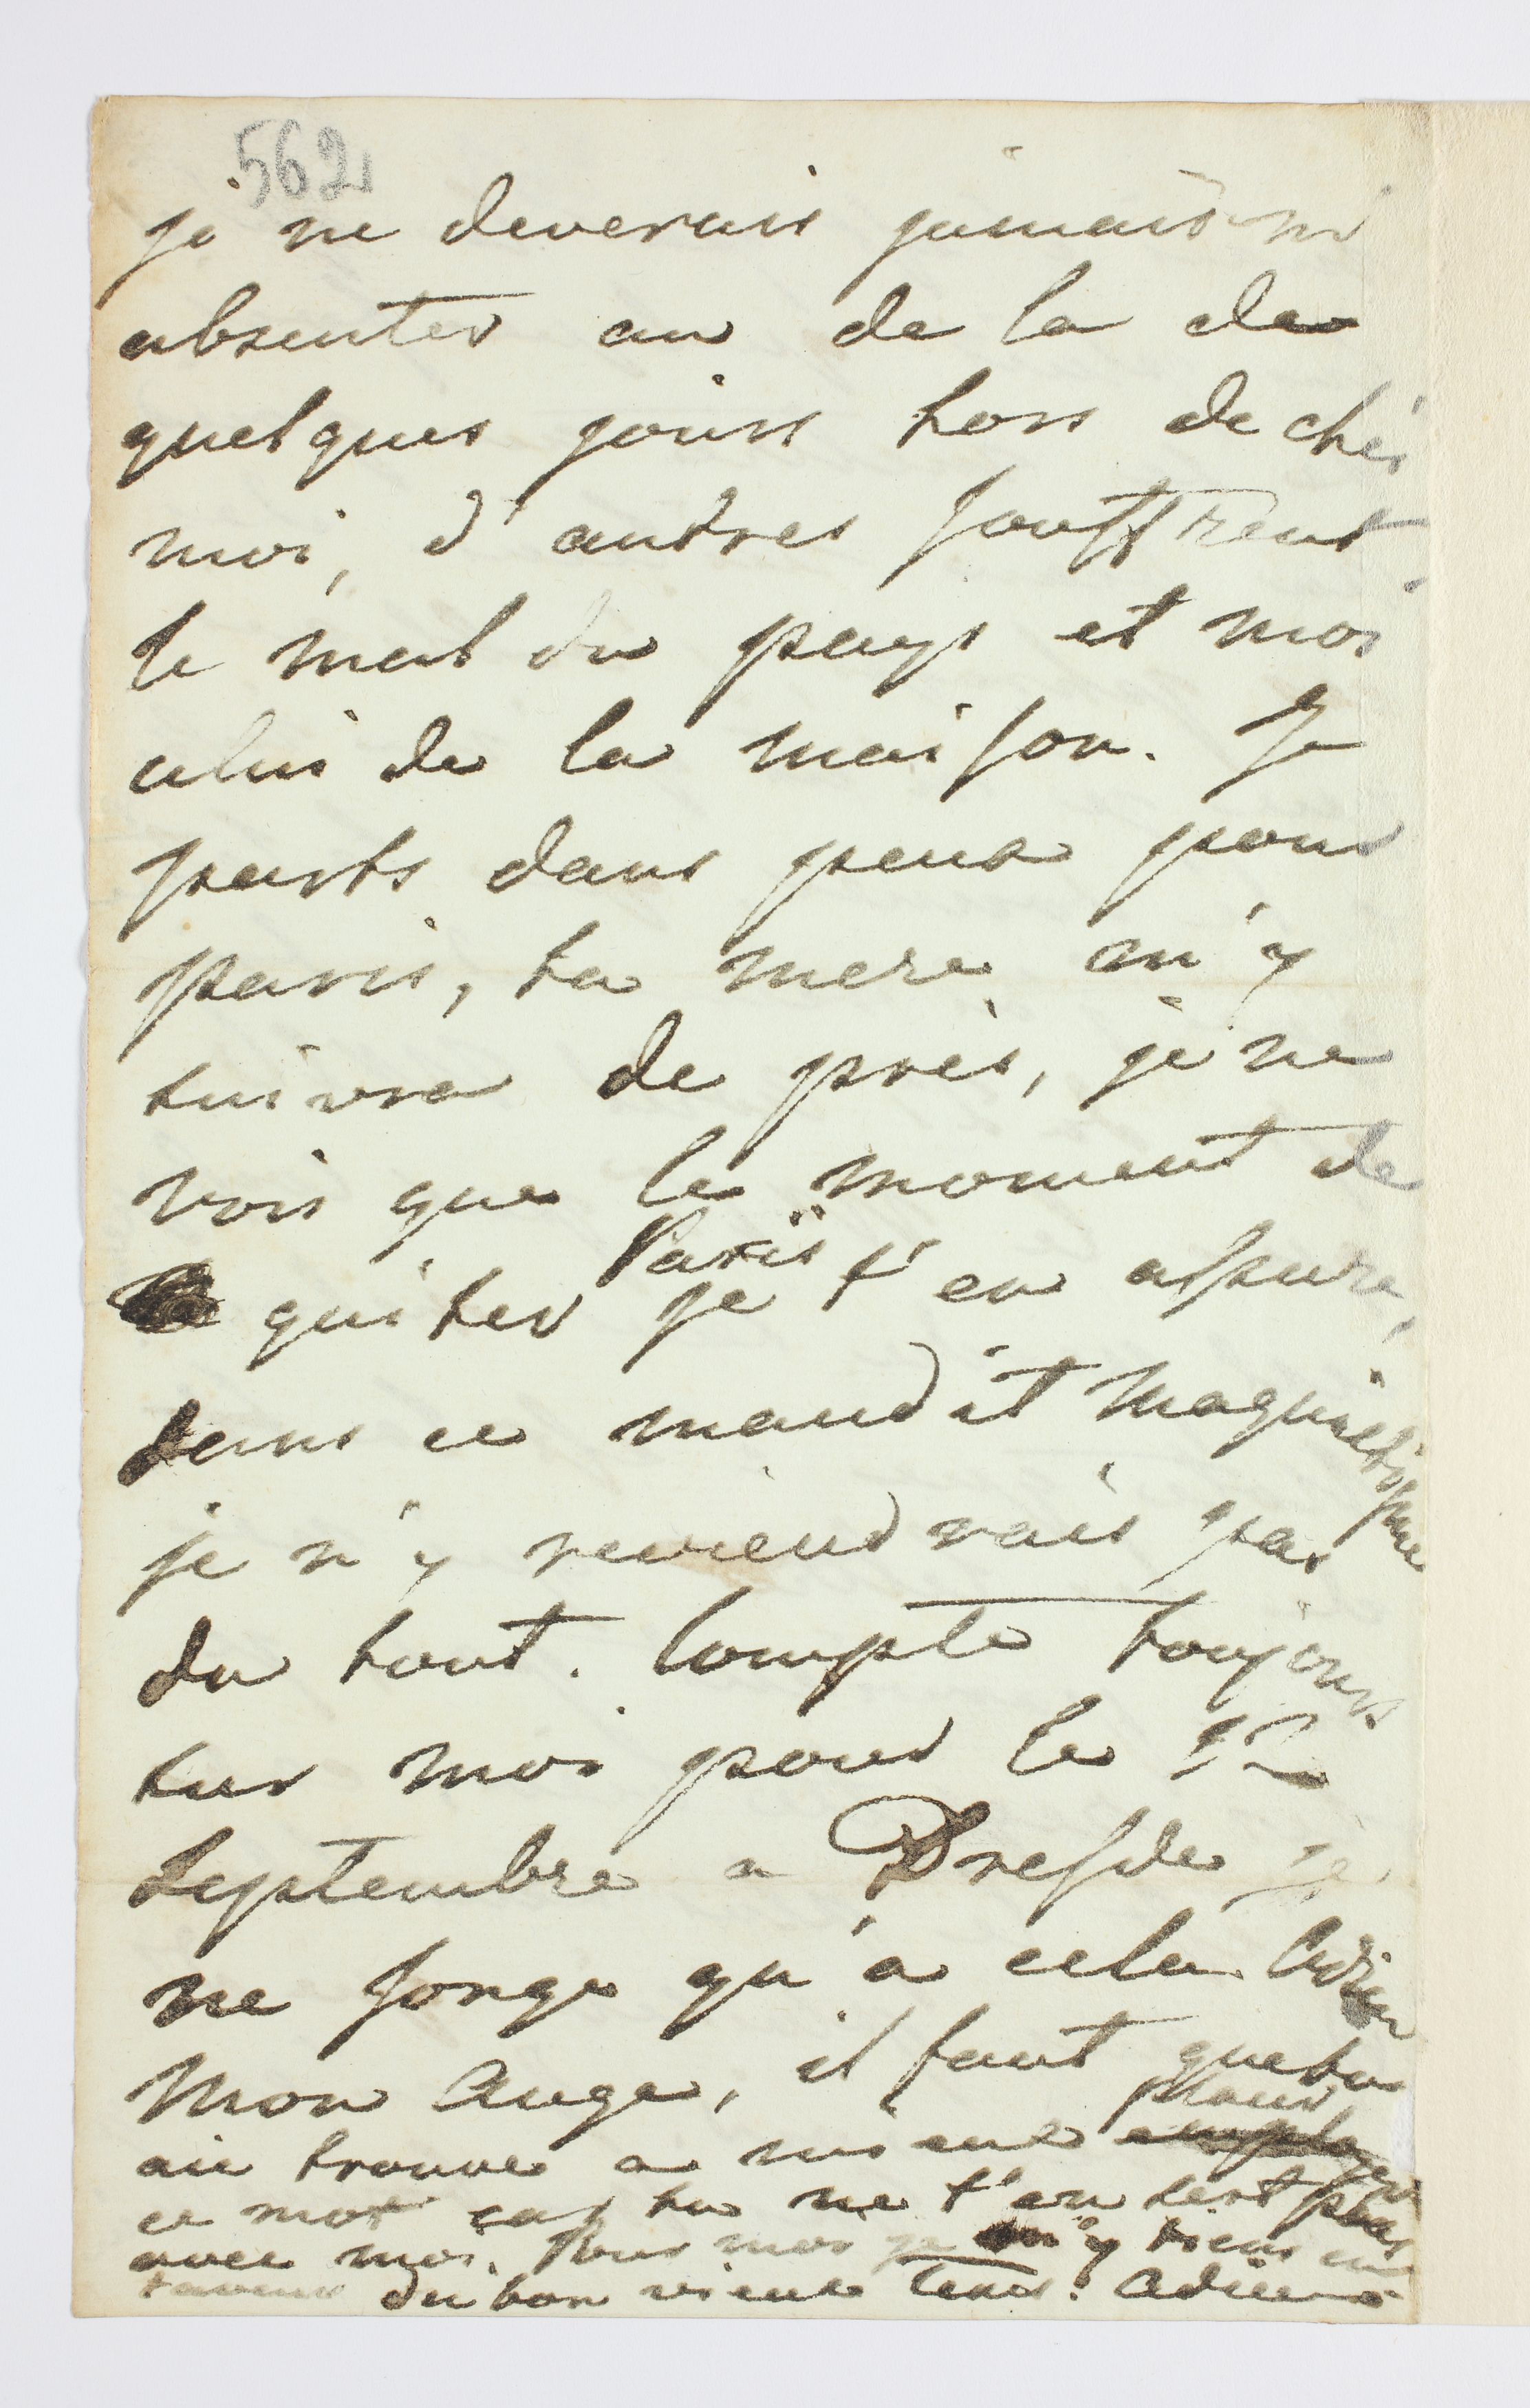 562
je ne deverais jamais m'
absenter au de la de
quelques jours hors de chés
moi, d'autres souffrent
le mal du pays et moi
celui de la maison. Je
parts dans peux pour
paris, ta mere m'y
suivra de près, je ne
vois que le moment de
Paris
quiter je t'en assure,
sans ce maudit magnetisme
je n'y reviendrais pas
du tout. Compte toujours
sur moi pour le
Septembre a Dresde je
ne songe qu'a cela. Adieu
Mon Ange, il faut que tu
aie trouvé a mieux
ce mot car tu ne t'en sert plus
avec moi. Pour moi je m'y tiens en
du bon vieux tems. Adieu